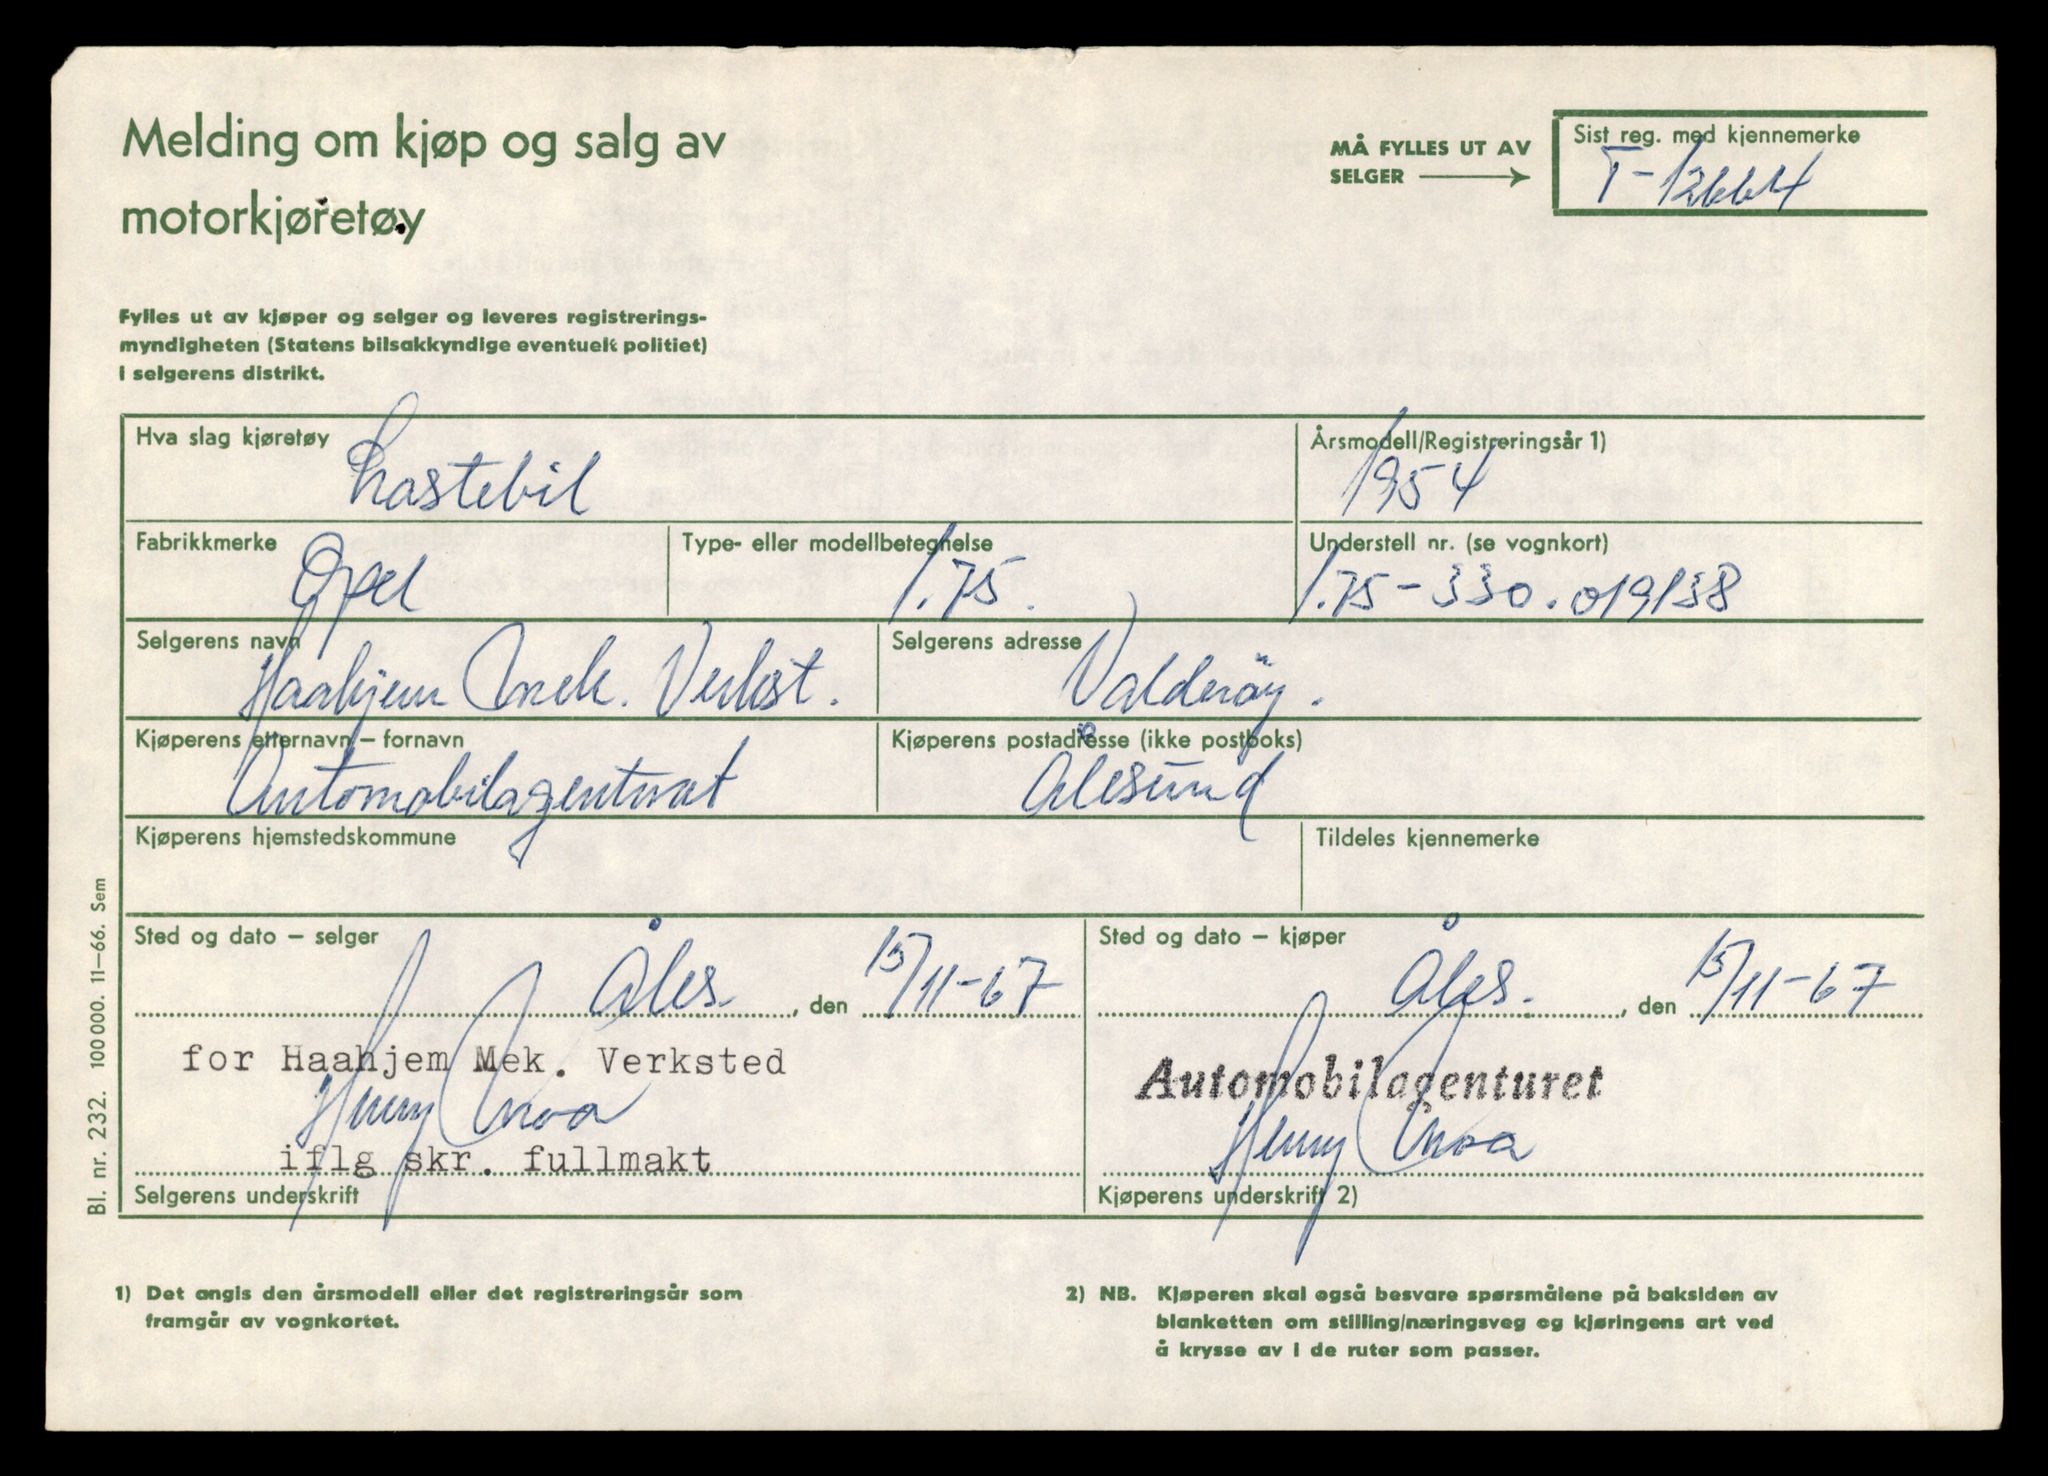 Melding om kjøp og salg av
motorkjøretøy
MÅ FYLLES UT AV
SELGER
Sist reg. med kjennemerke
T-12664
Fylles ut av kjøper og selger og leveres registrerings-
myndigheten (Statens bilsakkyndige eventuelt politiet)
i selgerens distrikt.
Hva slag kjøretøy
Lastebil
Årsmodell/Registreringsår 1)
1954
Fabrikkmerke
Opel
Type- eller modellbetegnelse
1.75.
Understell nr. (se vognkort)
1.75-330.019138
Selgerens navn
Haahjem Mek. Verkst.
Selgerens adresse
Valderöy.
Kjøperens etternavn – fornavn
Automobilagenturet
Kjøperens postadresse (ikke postboks)
Ålesund
Kjøperens hjemstedskommune
Tildeles kjennemerke
Sted og dato – selger
Åles., den 15/11-67
for Haahjem Mek. Verksted
Henny Moa
iflg skr. fullmakt
Selgerens underskrift
Sted og dato – kjøper
Åles., den 15/11-67
Automobilagenturet
Henny Moa
Kjøperens underskrift 2)
Bl. nr. 232. 100 000. 11–66. Sem
1) Det angis den årsmodell eller det registreringsår som
framgår av vognkortet.
2) NB. Kjøperen skal også besvare spørsmålene på baksiden av
blanketten om stilling/næringsveg og kjøringens art ved
å krysse av i de ruter som passer.